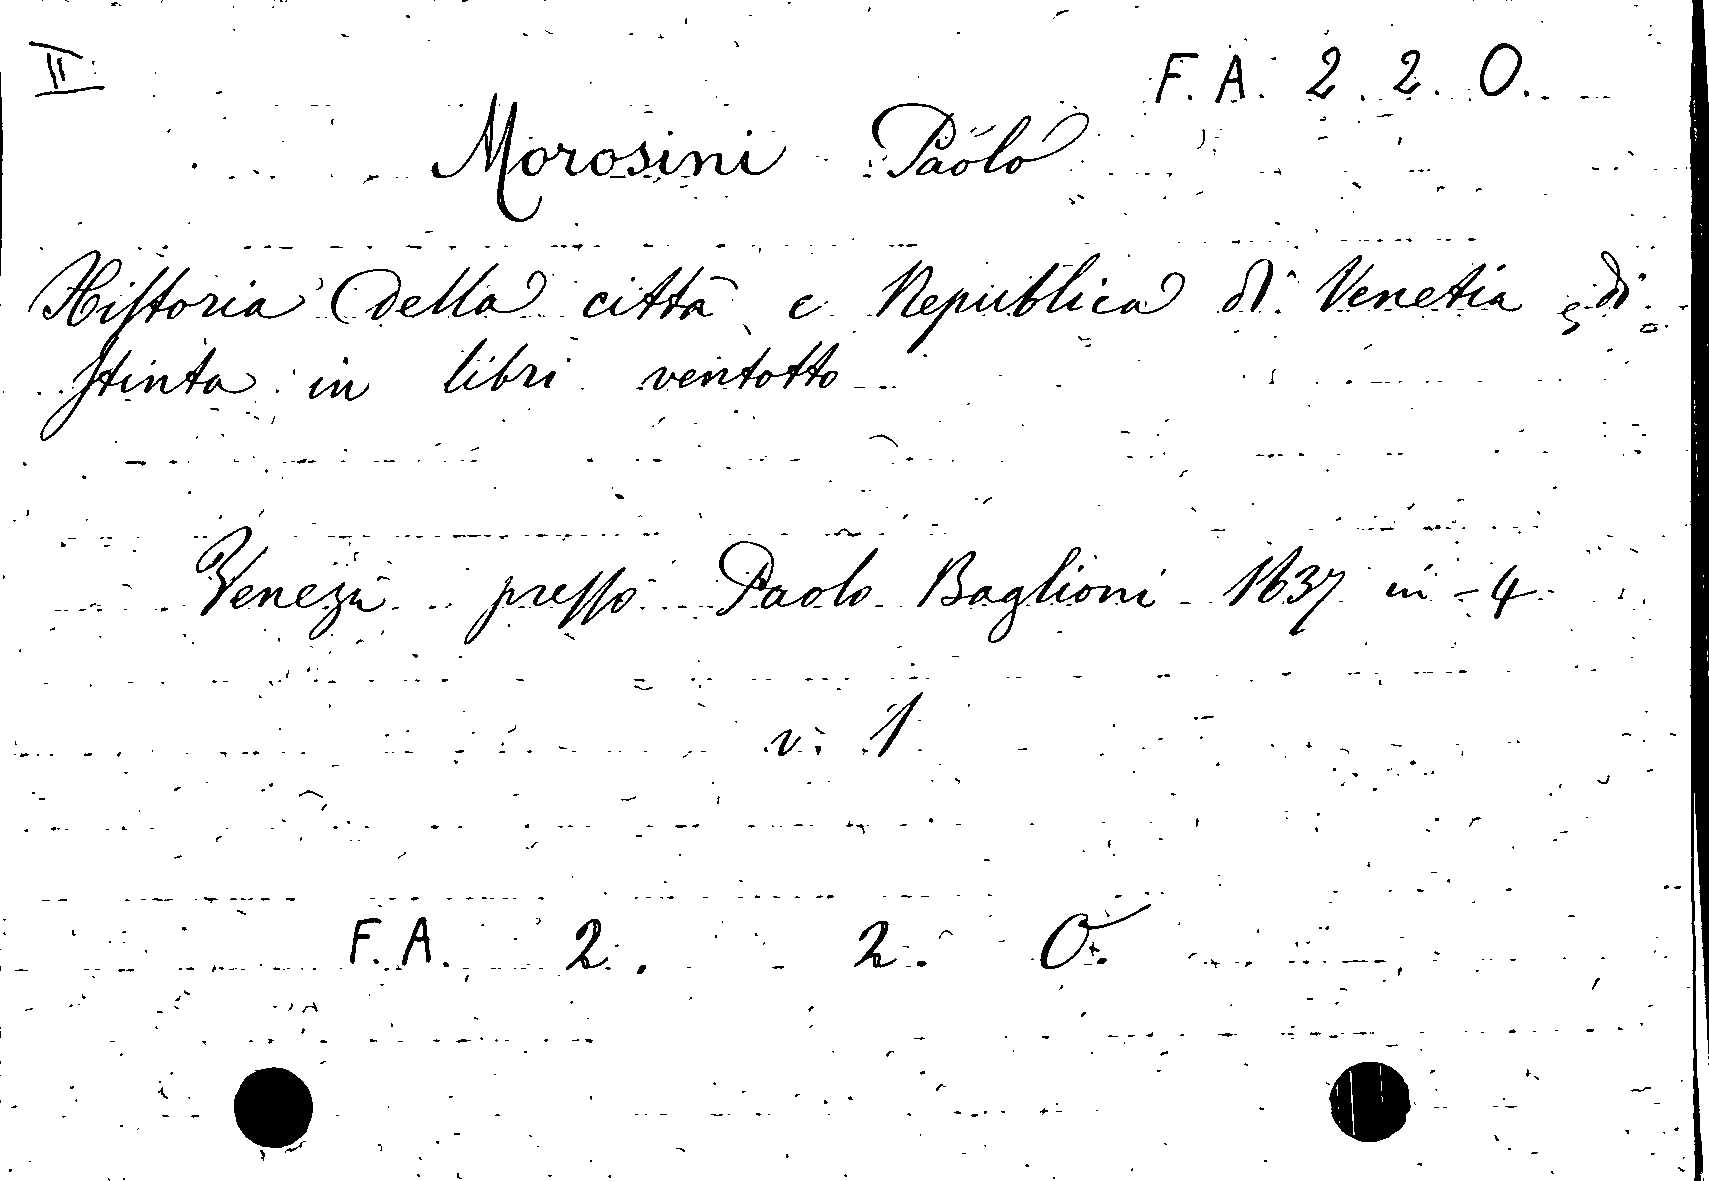 II
F. A. 2. 2. O.
Morosini Paolo
Historia della città e Republica di Venetia, di=
stinta in libri ventotto
Venezia presso Paolo Baglioni 1637 in-4
v. 1
F. A. 2. 2. O.